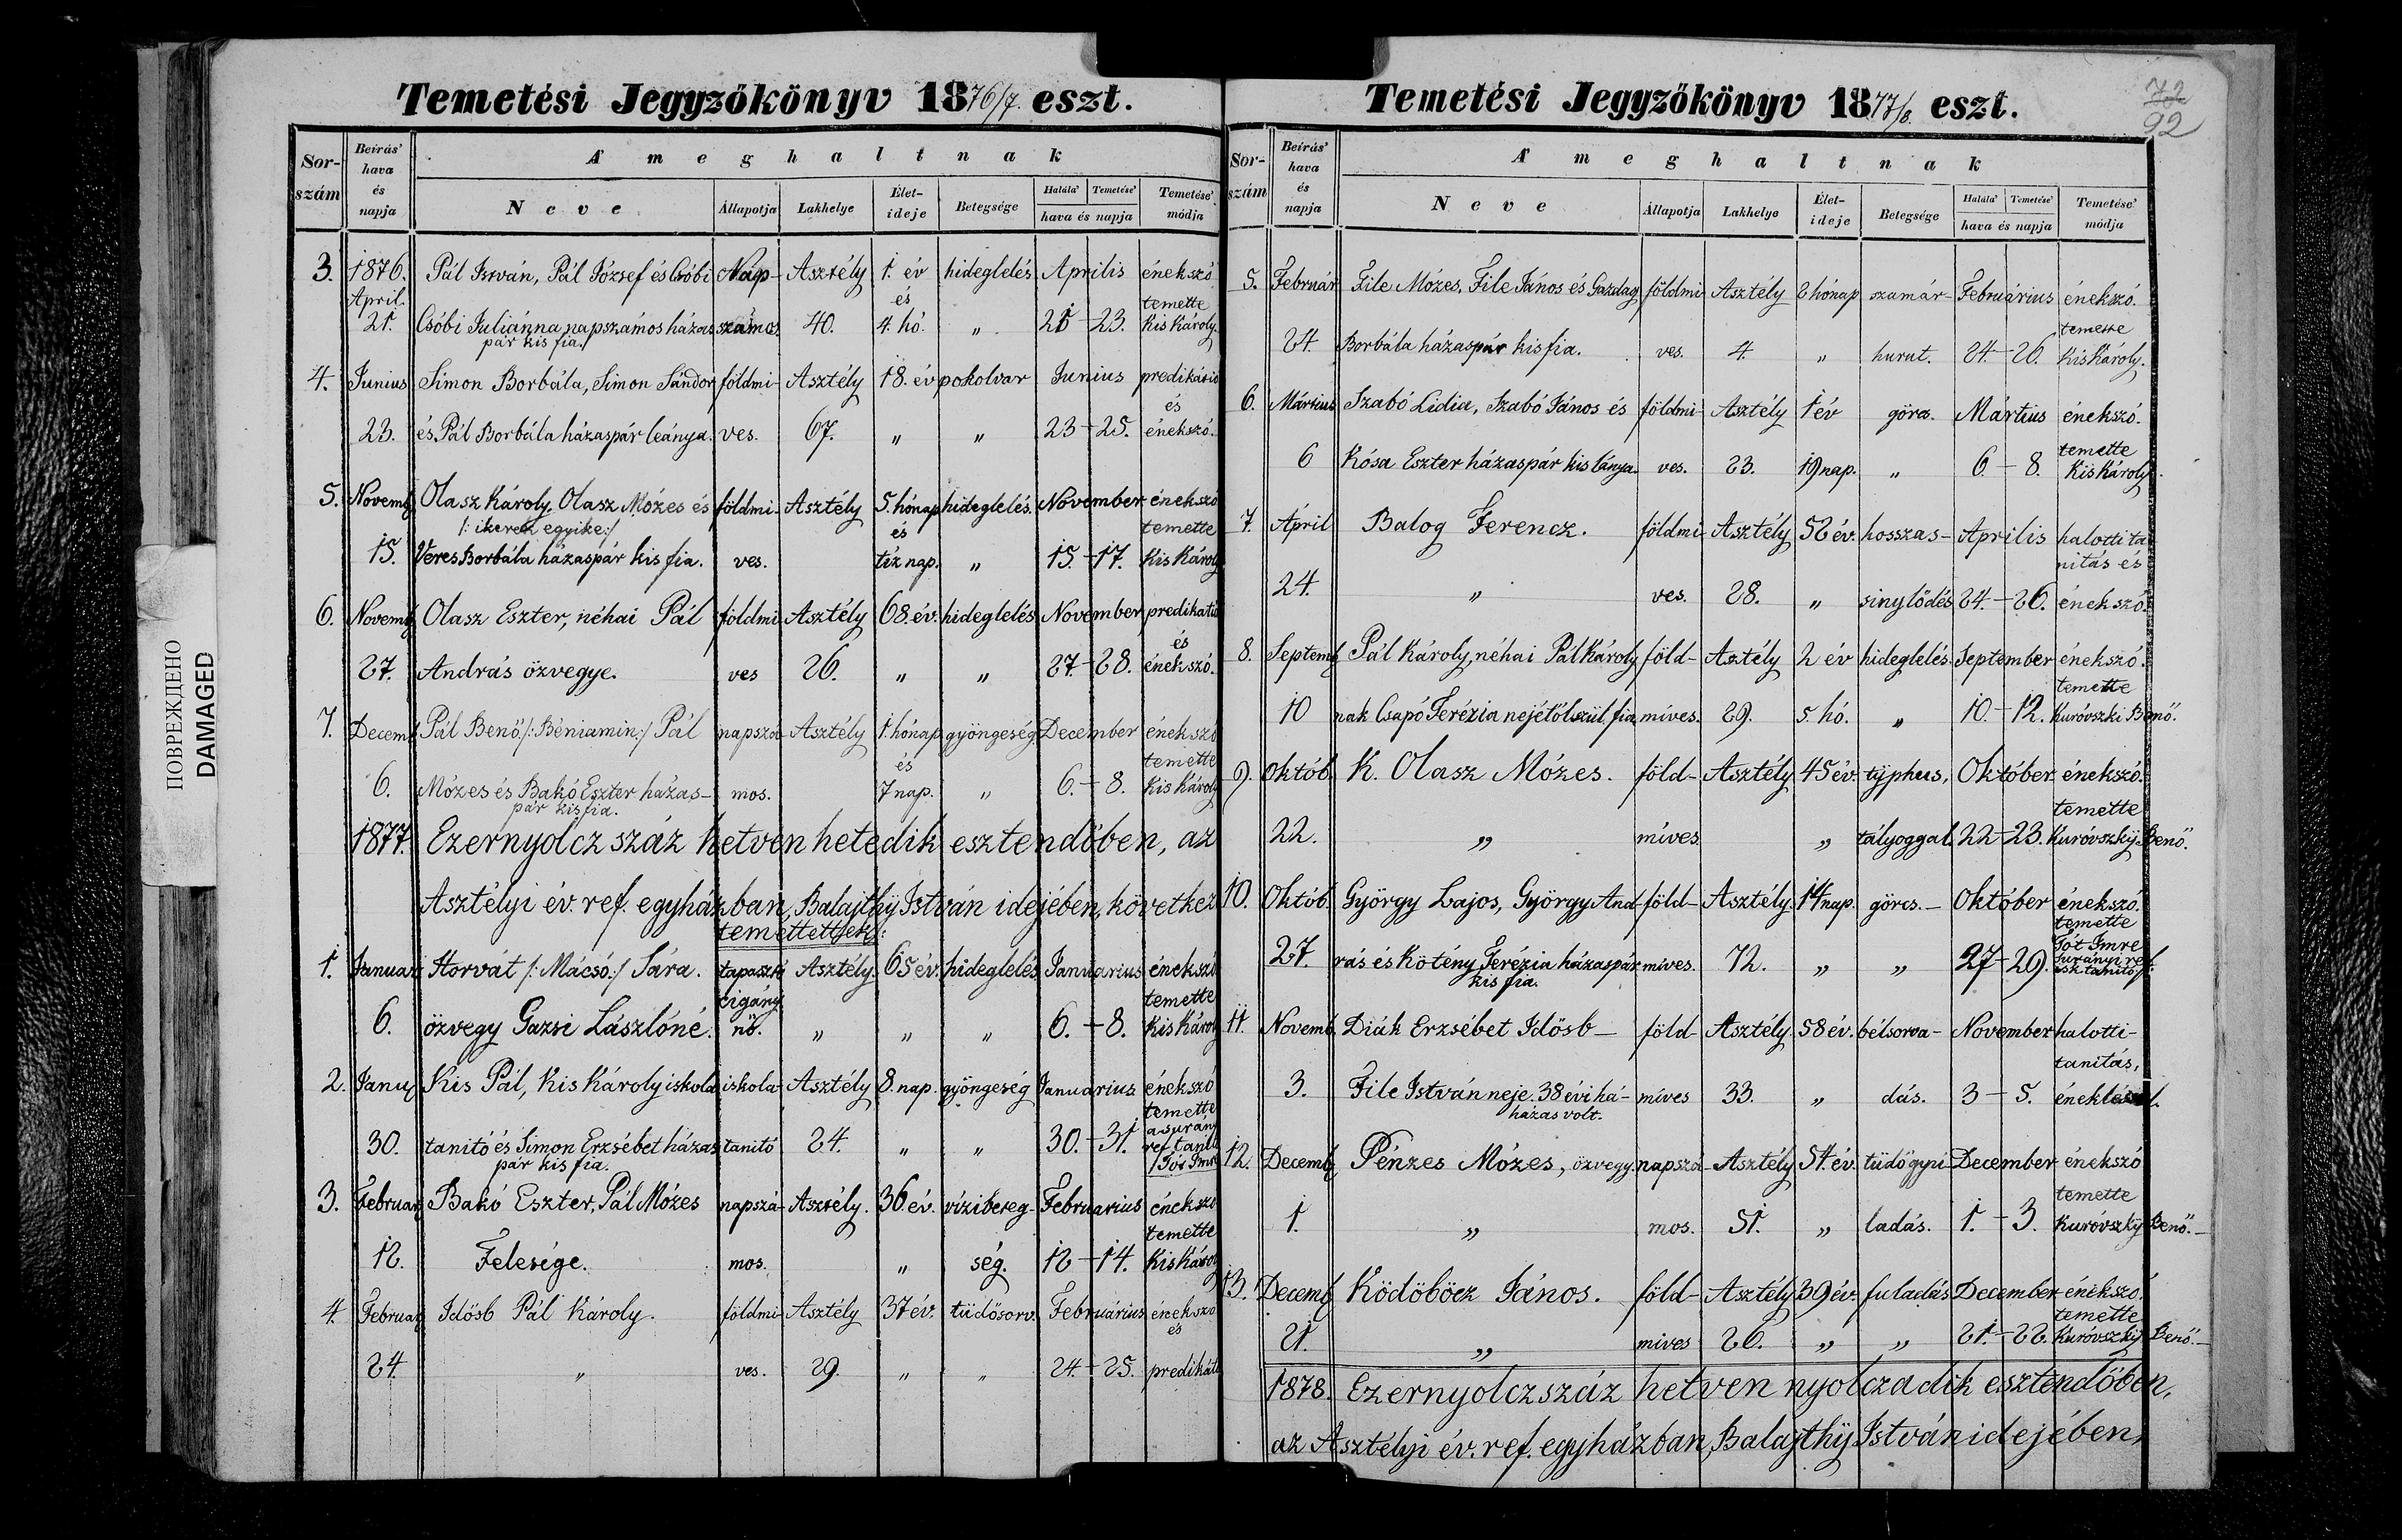 ПОВРЕЖДЕНО
DAMAGED
Temetési Jegyzőkönyv 1876/7. eszt.
Sor-szám Beírás' hava és napja A' meghaltnak
Neve Állapotja Lakhelye Élet-ideje Betegsége Halála' Temetése' hava és napja Temetése' módja
3. 1876. Pál István, Pál József és Csóbi Nap- Asztély 1. év hideglelés Aprilis énekszó
April. és temette
21. Csóbi Juliánna napszámos házas számos. 40. 4. hó. „ 21 - 23. Kis Károly.
pár kis fia./
4. Junius Simon Borbála, Simon Sándor földmi- Asztély 18. év pokolvar Junius predikátió
és
23. és Pál Borbála házaspár leánya. ves. 67. „ „ 23 - 25. énekszó.
5. Novemb. Olasz Károly. Olasz Mózes és földmi- Asztély 5. hónap hideglelés. November énekszó
/: ikerek egyike:/ és temette
15. Veres Borbála házaspár kis fia. ves. tíz nap. „ 15. - 17. Kis Károly
6. Novemb. Olasz Eszter, néhai Pál földmi- Asztély 68. év. hideglelés November predikatió
és
27. András özvegye. ves 26. „ „ 27. - 28. énekszó.
7. Decemb. Pál Benő /:Béniamin:/ Pál napszá- Asztély 1. hónap gyöngeség. December énekszó
és temette
6. Mózes és Bakó Eszter házas- mos. 7 nap. „ 6. - 8. Kis Károly
pár kis fia.
1877. Ezernyolcz száz hetven hetedik esztendőben, az
Asztélyi év. ref. egyházban, Balajthÿ István idejében, következ
temettettek:
1. Januar Horvát /: Mácsó:/ Sára. tapaszkó Asztély. 65 év. hideglelés Januarius énekszó
cigány temette
6. özvegy Gazsi Lászlóné. nő. „ „ „ 6. - 8. Kis Károly
2. Januar Kis Pál, Kis Károly iskola iskola- Asztély 8. nap. gyöngeség Januarius énekszó
temette
a surány
30. tanitó és Simon Erzsébet házas tanitó 24. „ „ 30. - 31. ref. tanitó
pár kis fia. /Tót Imre
3. Februar Bakó Eszter, Pál Mózes napszá- Asztély. 36 év. vízibeteg- Februarius énekszó
temette
12. Felesége. mos. „ ség. 12 - 14. Kis Károly
4. Februar Idősb Pál Károly. földmi- Asztély 37 év. tüdősorv. Februárius énekszó
és
24. „ ves. 29. „ „ 24. - 25. predikáti
72
92
Temetési Jegyzőkönyv 1877/8. eszt.
Sor-szám Beírás' hava és napja A' meghaltnak
Neve Állapotja Lakhelye Élet-ideje Betegsége Halála' Temetése' hava és napja Temetése' módja
5. Február File Mózes. File János és Gazdag földmi- Asztély 2 hónap szamár- Februárius énekszó.
temette
24. Borbála házaspár kis fia. ves. 4. „ hurut. 24 - 26. Kis Károly.
6. Mártius Szabó Lidia, Szabó János és földmi- Asztély 1 év görcs. Mártius énekszó.
temette
6 Kósa Eszter házaspár kis lánya. ves. 23. 19 nap. „ 6 - 8. Kis Károly.
7. April Balog Ferencz. földmi- Asztély 52 év. hosszas- Aprilis halotti ta-
nitás és
24. „ ves. 28. „ sinylődés 24. - 26. énekszó.
8. Septemb. Pál Károly, néhai Pál Károly föld- Asztély 2 év hideglelés. September énekszó.
temette
10 nak Csapó Terézia nejétől szül. fia. míves. 29. 5. hó. „ 10. - 12. Kuróvszki Benő.
9. Októb. K. Olasz Mózes. föld- Asztély 45 év. typhus, Október énekszó.
temette
22. „ míves. „ tályoggal. 22 - 23. Kuróvszkÿ Benő.
10. Októb. György Lajos, György And- föld- Asztély 14 nap. görcs. Október énekszó.
temette
Tót Imre
27. rás és Kötény Terézia házaspár míves. 72. „ „ 27 - 29. Surányi ref.
kis fia. isk. tanitó/:
11. Novemb. Diák Erzsébet Idősb föld- Asztély. 58 év. bélsorva- November halotti-
tanitás,
3. File István neje. 38 évi há- míves 33. „ dás. 3 - 5. énekléssel.
házas volt.
12. Decemb. Pénzes Mózes, özvegy. napszá- Asztély 54. év. tüdőgyu- December énekszó
temette
1. „ mos. 51. „ ladás. 1. - 3. Kuróvszkÿ Benő.
13. Decemb. Ködöböcz János. föld- Asztély 39 év. fuladás December énekszó.
temette
21. „ míves 26. „ „ 21. - 22. Kuróvszkÿ Benő.
1878. Ezernyolczszáz hetven nyolczadik esztendőben,
az Asztélyi év. ref. egyházban, Balajthÿ István idejében,